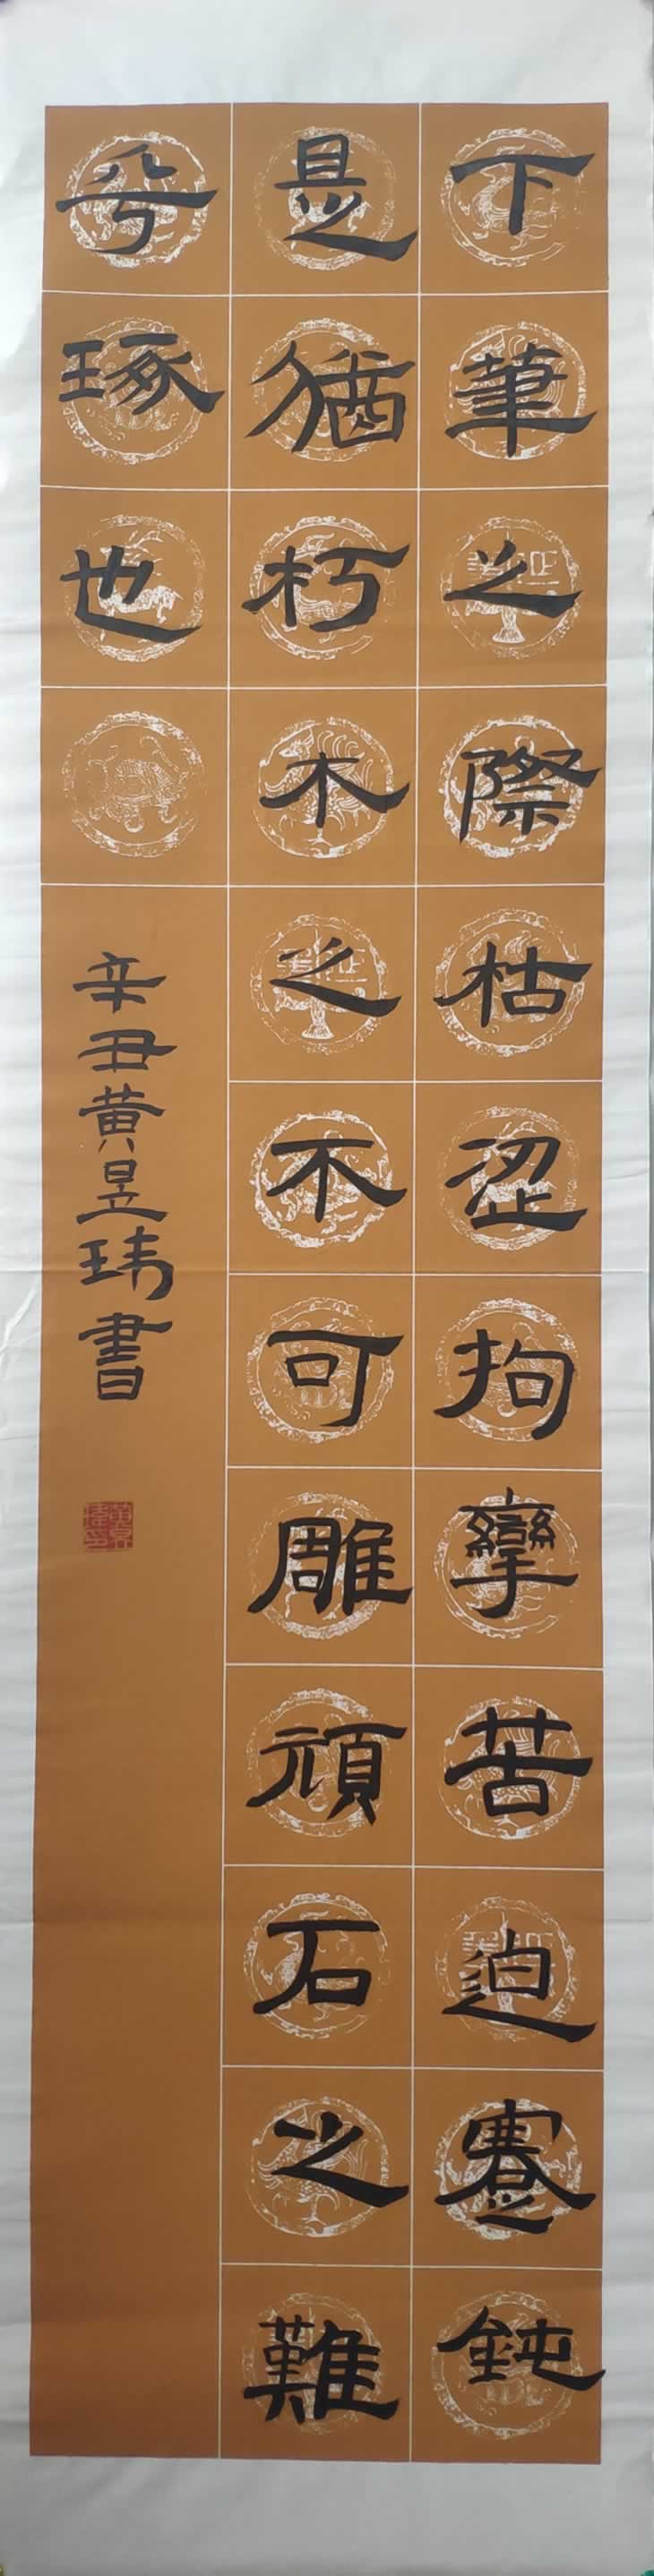 下筆之際枯涩拘攣苦迫蹇鈍
是猶朽木之不可雕頑石之難
兮琢也
辛丑黄昱玮書